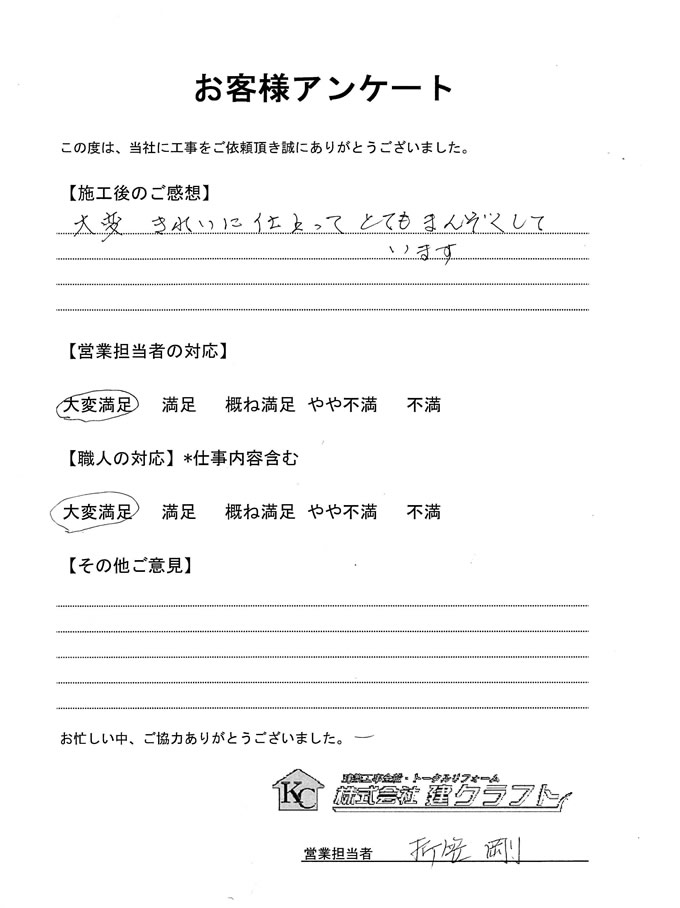 お客様アンケート
この度は、当社に工事をご依頼頂き誠にありがとうございました。
【施工後のご感想】
大変 きれいに仕上って とてもまんぞくして
います
【営業担当者の対応】
大変満足 満足 概ね満足 やや不満 不満
【職人の対応】*仕事内容含む
大変満足 満足 概ね満足 やや不満 不満
【その他ご意見】
お忙しい中、ご協力ありがとうございました。
KC
建築工事全般・トータルリフォーム
株式会社 建クラフト
営業担当者 剛